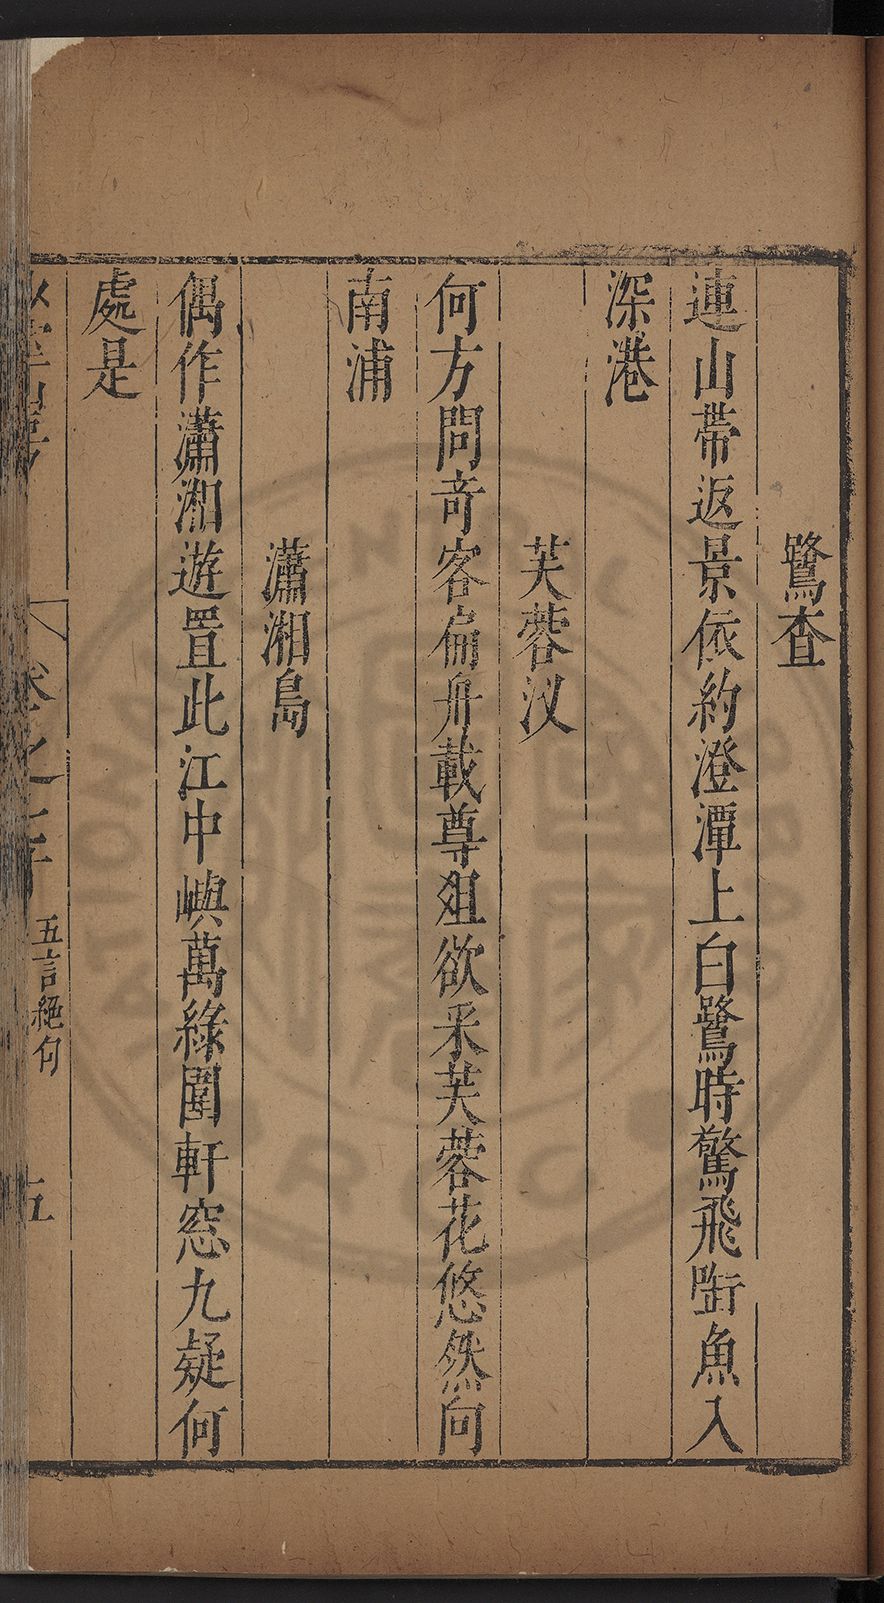 鷺査
連山帶返景依約澄潭上白鷺時驚飛啣魚入
深港
芙蓉汊
何方問奇客扁舟載尊爼欲采芙蓉花悠然向
南浦
瀟湘島
偶作瀟湘遊置此江中嶼萬綠圍軒窓九疑何
處是
卷之
五言絕句
五